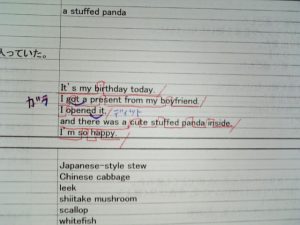 a stuffed panda
入っていた。
It's my birthday today.
ガラ I got a present from my boyfriend.
I opened it.
and there was a cute stuffed panda inside.
I'm so happy.
Japanese-style stew
Chinese cabbage
leek
shiitake mushroom
scallop
whitefish